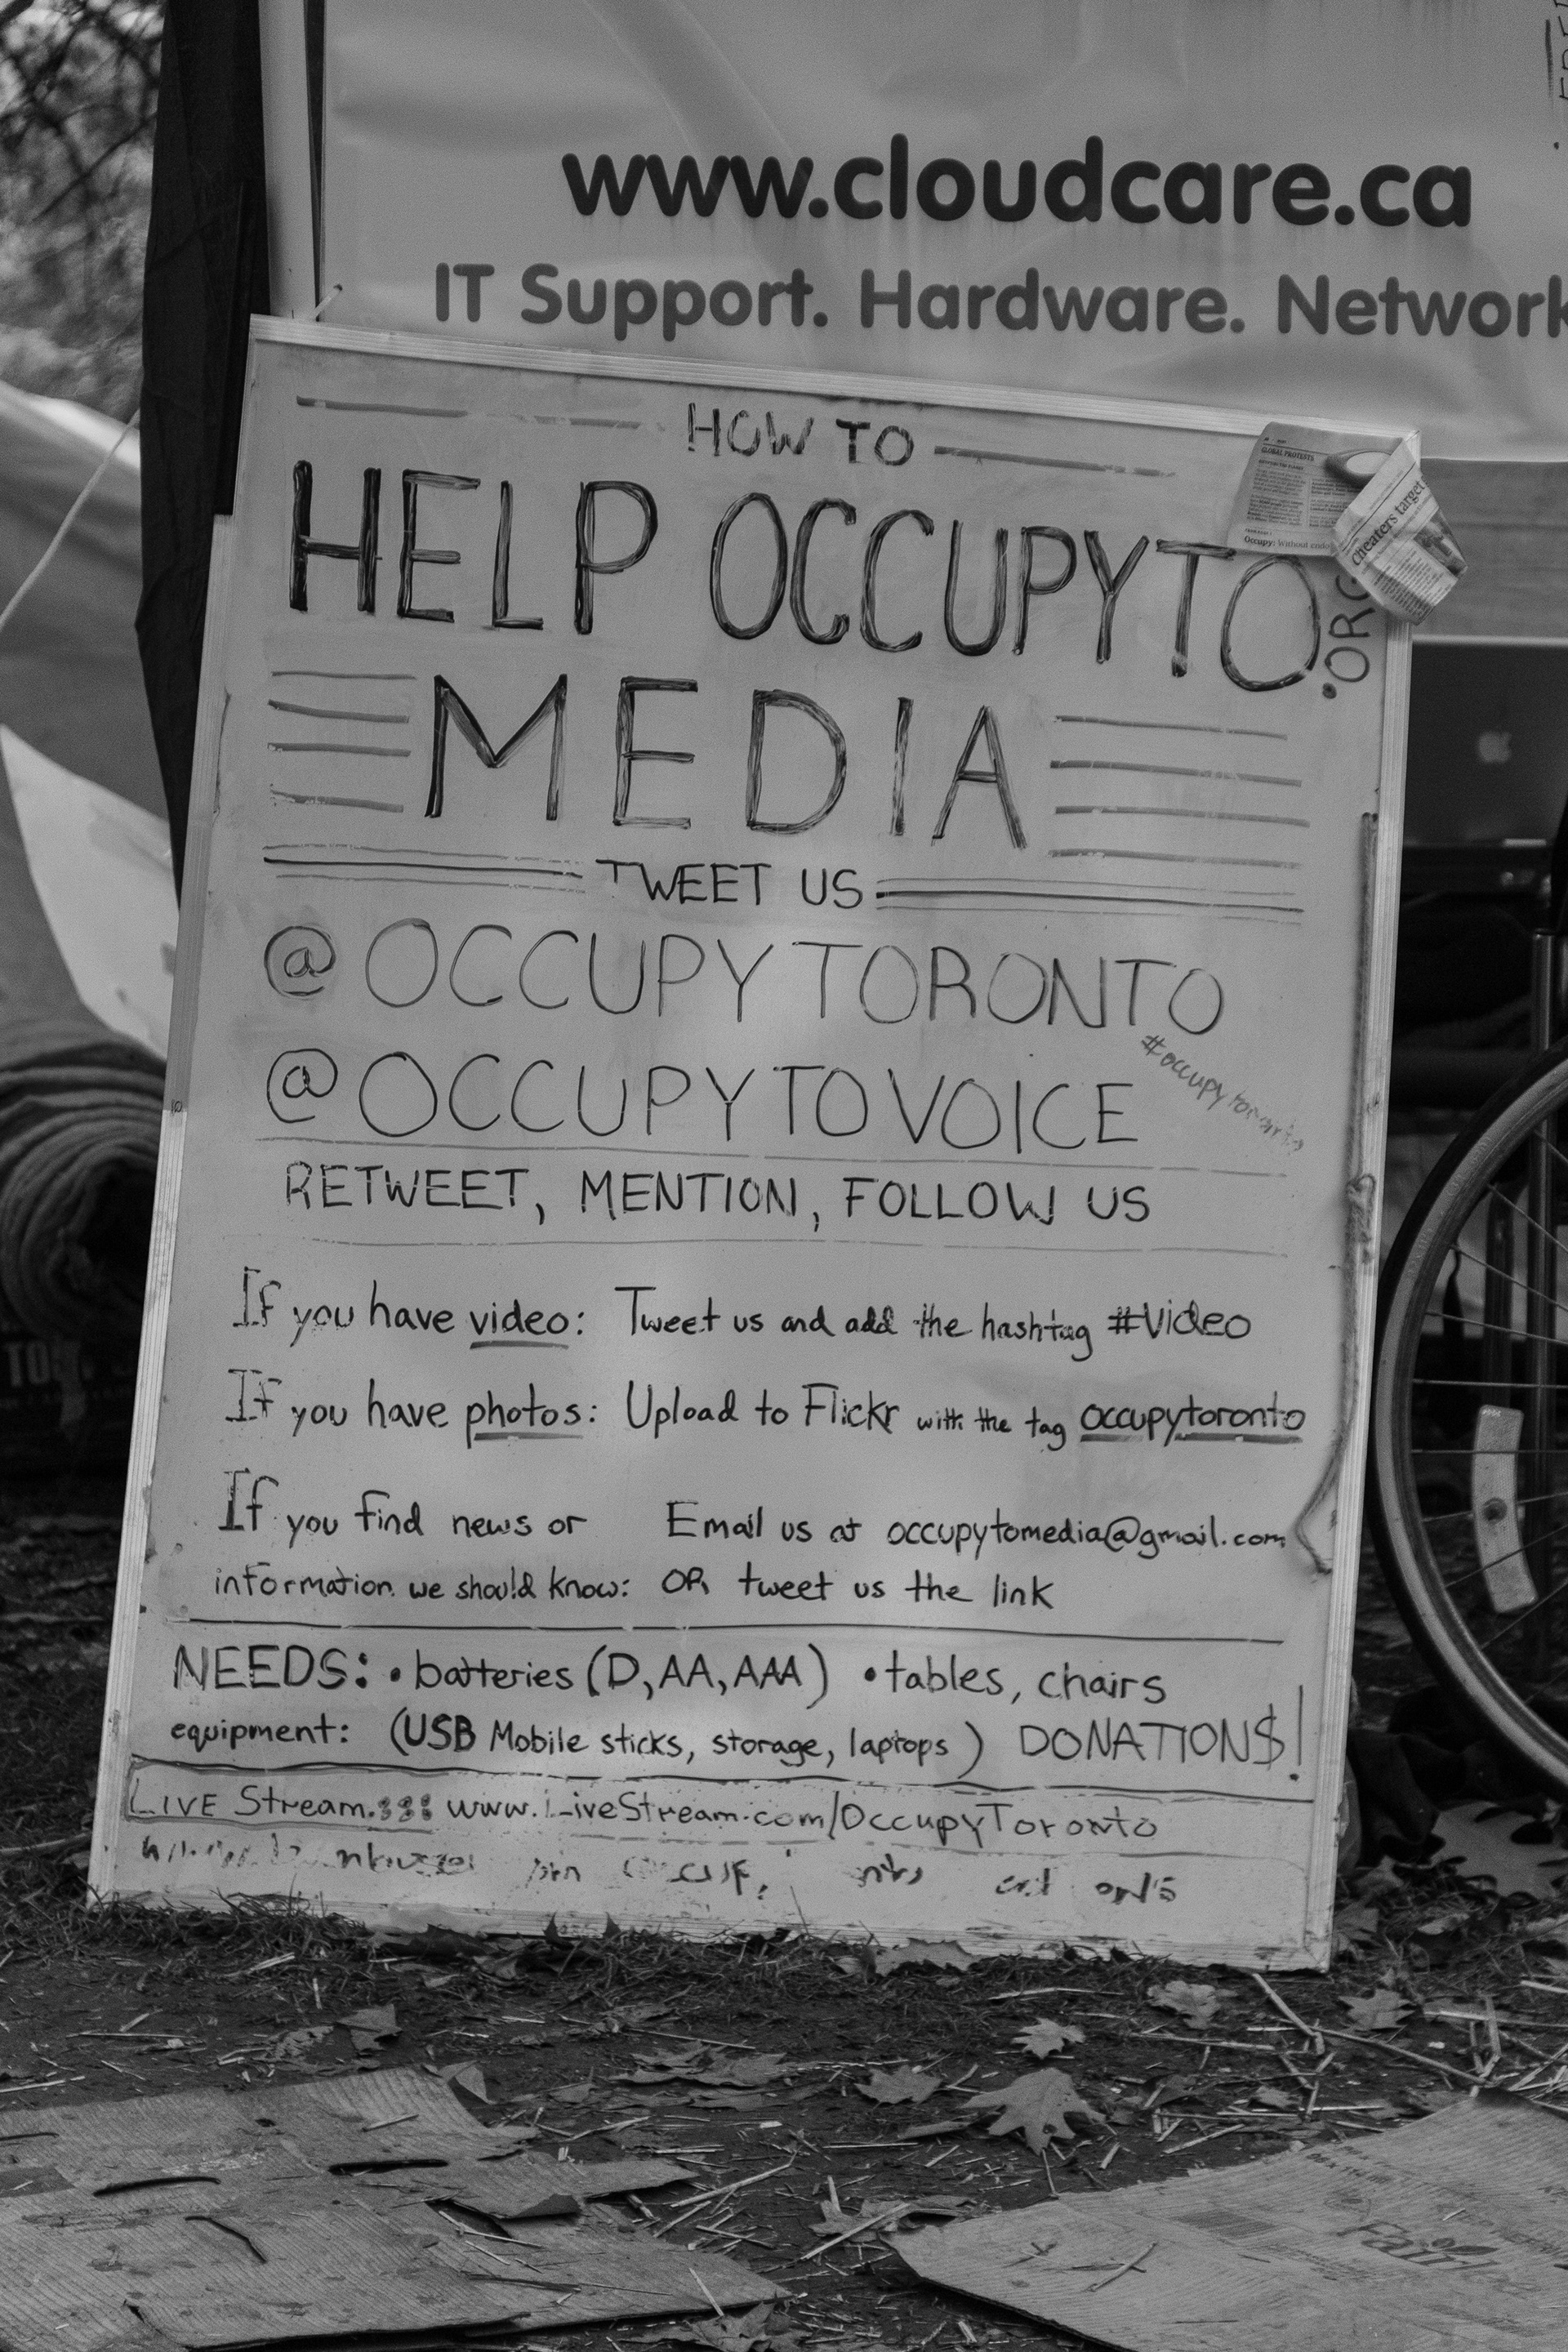 www.cloudcare.ca
IT Support. Hardware. Network
HOW TO
HELP OCCUPYTO
.ORG
GLOBAL PROTESTS
Occupy: Without
Cheaters target
MEDIA
TWEET US
@OCCUPYTORONTO
@OCCUPYTOVOICE
#occupytoronto
RETWEET, MENTION, FOLLOW US
If you have video: Tweet us and add the hashtag #Video
If you have photos: Upload to Flickr with the tag occupytoronto
If you find news or Email us at occupytomedia@gmail.com
information we should know: OR tweet us the link
NEEDS: • batteries (D, AA, AAA) • tables, chairs
equipment: (USB Mobile sticks, storage, laptops) DONATION$!
LIVE Stream.::: www.LiveStream.com/OccupyToronto